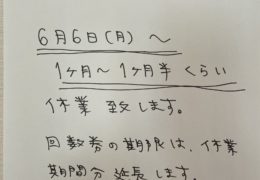 6月6日(月) ～
1ヶ月～1ヶ月半 くらい
休業 致します。
回数券の期限は、休業
期間分 延長します。